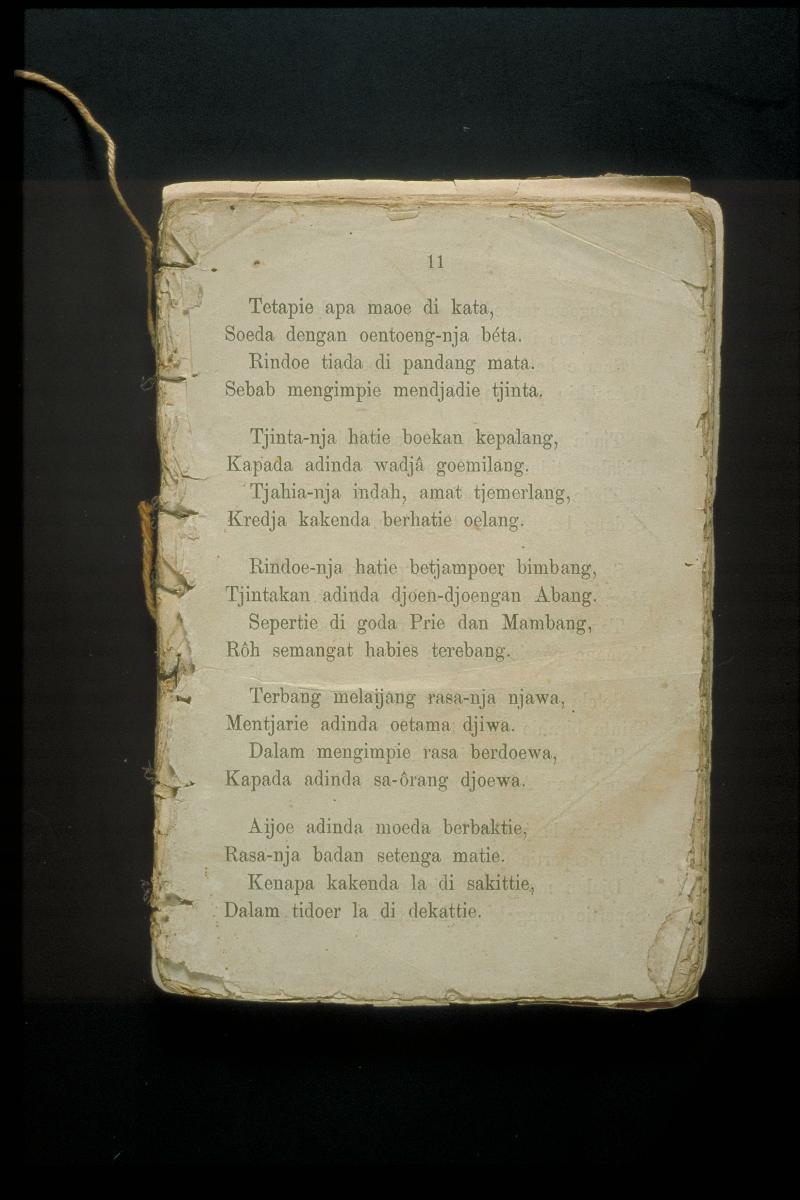 11
Tetapie apa maoe di kata,
Soeda dengan oentoeng-nja béta.
Rindoe tiada di pandang mata.
Sebab mengimpie mendjadie tjinta.
Tjinta-nja hatie boekan kepalang,
Kapada adinda wadjâ goemilang.
Tjahia-nja indah, amat tjemerlang,
Kredja kakenda berhatie oelang.
Rindoe-nja hatie betjampoer bimbang,
Tjintakan adinda djoen-djoengan Abang.
Sepertie di goda Prie dan Mambang,
Rôh semangat habies terebang.
Terbang melaijang rasa-nja njawa,
Mentjarie adinda oetama djiwa.
Dalam mengimpie rasa berdoewa,
Kapada adinda sa-ôrang djoewa.
Aijoe adinda moeda berbaktie,
Rasa-nja badan setenga matie.
Kenapa kakenda la di sakittie,
Dalam tidoer la di dekattie.